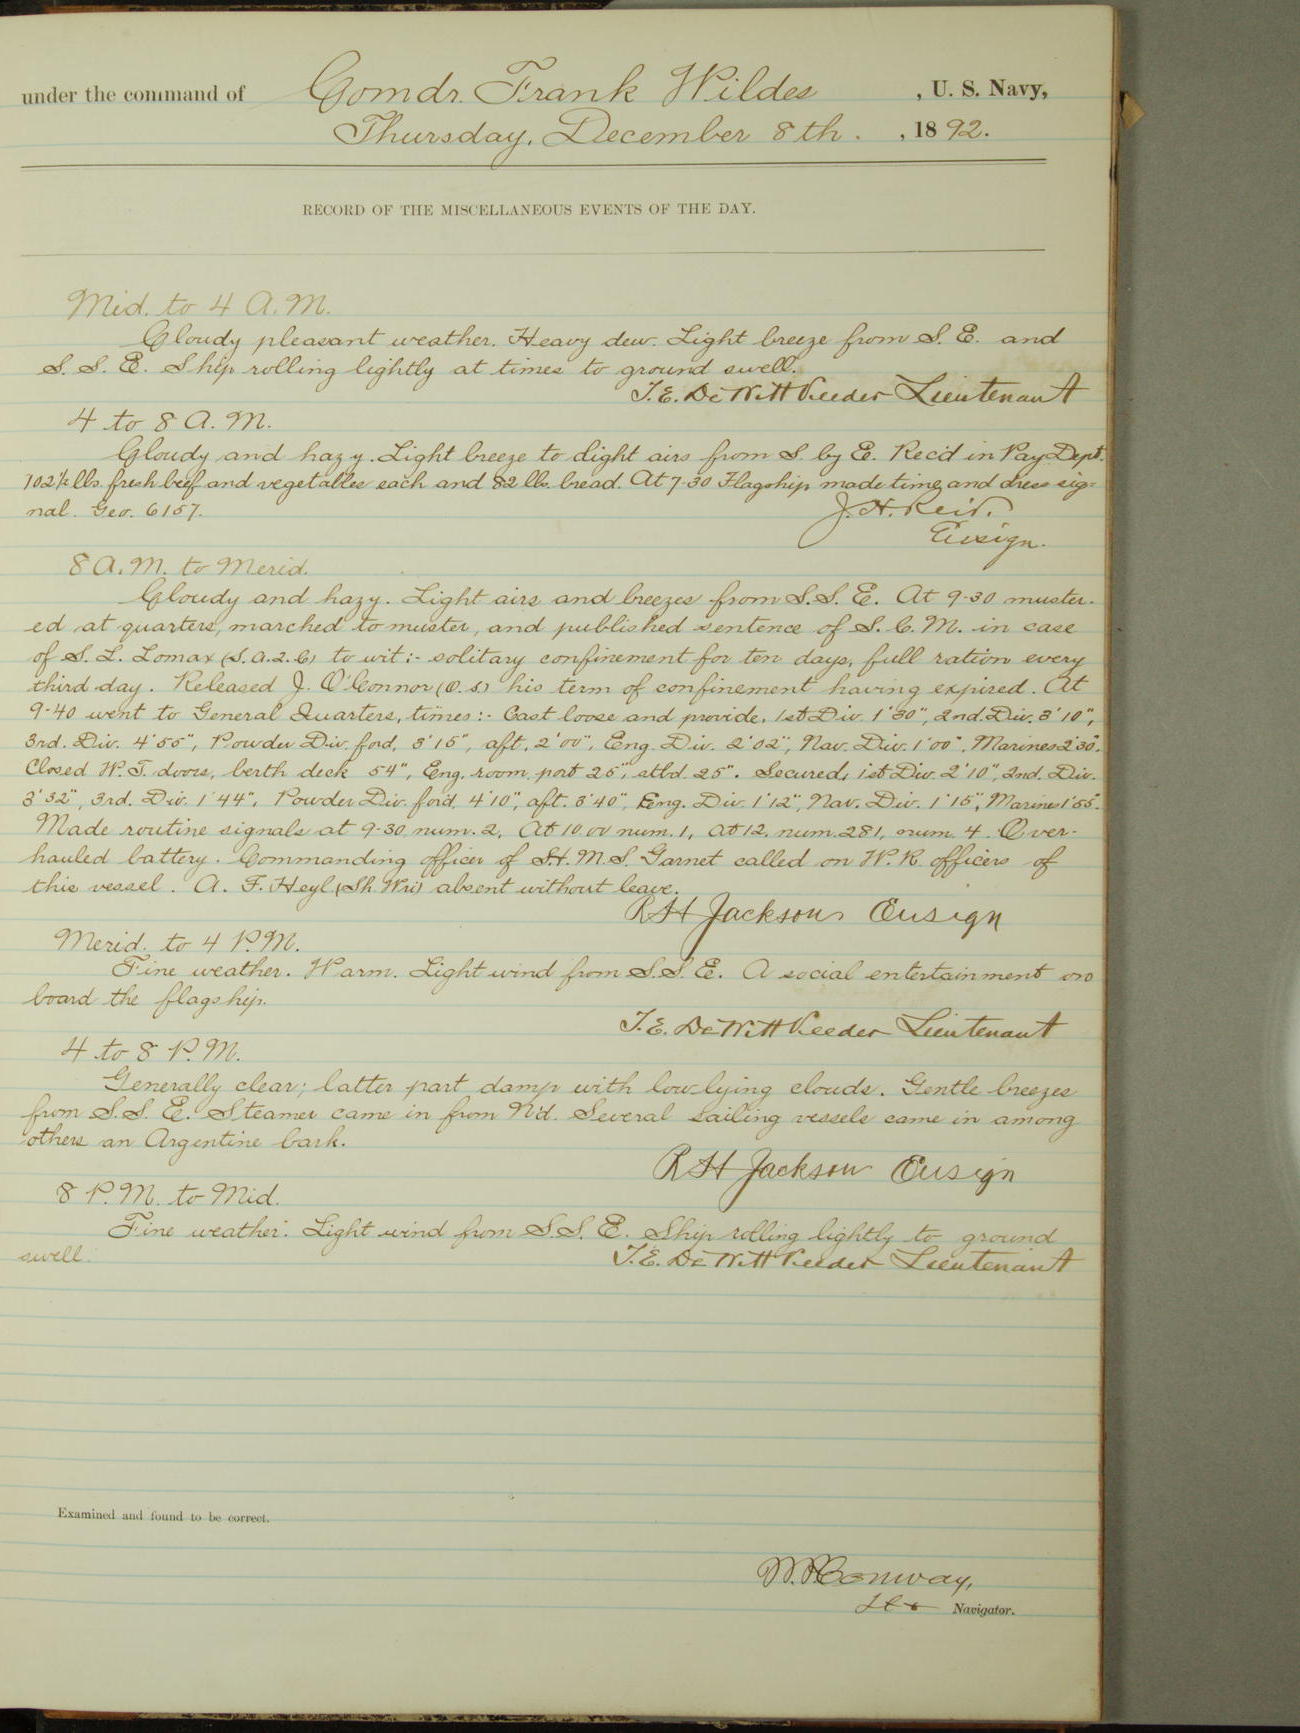 under the command of Comdr. Frank Wildes, U. S. Navy,
Thursday, December 8th., 1892.
RECORD OF THE MISCELLANEOUS EVENTS OF THE DAY.
Mid. to 4 A.M.
Cloudy pleasant weather. Heavy dew. Light breeze from S. E. and
S. S. E. Ship rolling lightly at times to ground swell.
T. E. DeWitt Veeder Lieutenant
4 to 8 A.M.
Cloudy and hazy. Light breeze to light airs from S. by E. Rec'd in Pay Dept.
102½ lbs. fresh beef and vegetables each and 82 lbs. bread. At 7-30 Flagship made time and dress sig-
nal. Geo. 6157.
J. H. Reid.
Ensign.
8 A.M. to Merid.
Cloudy and hazy. Light airs and breezes from S.S.E. At 9-30 muster-
ed at quarters, marched to muster, and published sentence of S.C.M. in case
of S. L. Lomax (S.A.2.C) to wit:- solitary confinement for ten days, full ration every
third day. Released J. O'Connor (O.S) his term of confinement having expired. At
9-40 went to General Quarters, times:- Cast loose and provide, 1st Div. 1'30", 2nd. Div. 3'10",
3rd. Div. 4'55", Powder Div. ford, 3'15", aft. 2'00", Eng. Div. 2'02", Nav. Div. 1'00", Marines 2'30".
Closed W.T. doors, berth deck 54", Eng. room port 25", stbd. 25". Secured, 1st Div. 2'10", 2nd. Div.
3'32", 3rd. Div. 1'44", Powder Div. ford. 4'10", aft. 3'40", Eng. Div. 1'12", Nav. Div. 1'15", Marines 1'55".
Made routine signals at 9-30 num. 2, At 10.00 num. 1, at 12, num. 281, num. 4. Over-
hauled battery. Commanding officer of H.M.S. Garnet called on W.R. officers of
this vessel. A. F. Heyl (Sh. Wri) absent without leave.
R H Jackson Ensign
Merid. to 4 P.M.
Fine weather. Warm. Light wind from S.S.E. A social entertainment on
board the flagship.
T. E. DeWitt Veeder Lieutenant
4 to 8 P.M.
Generally clear; latter part damp with low lying clouds. Gentle breezes
from S.S.E. Steamer came in from N'd. Several sailing vessels came in among
others an Argentine bark.
R H Jackson Ensign
8 P.M. to Mid.
Fine weather. Light wind from S.S.E. Ship rolling lightly to ground
swell.
T. E. DeWitt Veeder Lieutenant
Examined and found to be correct.
W. P. Conway,
Navigator.